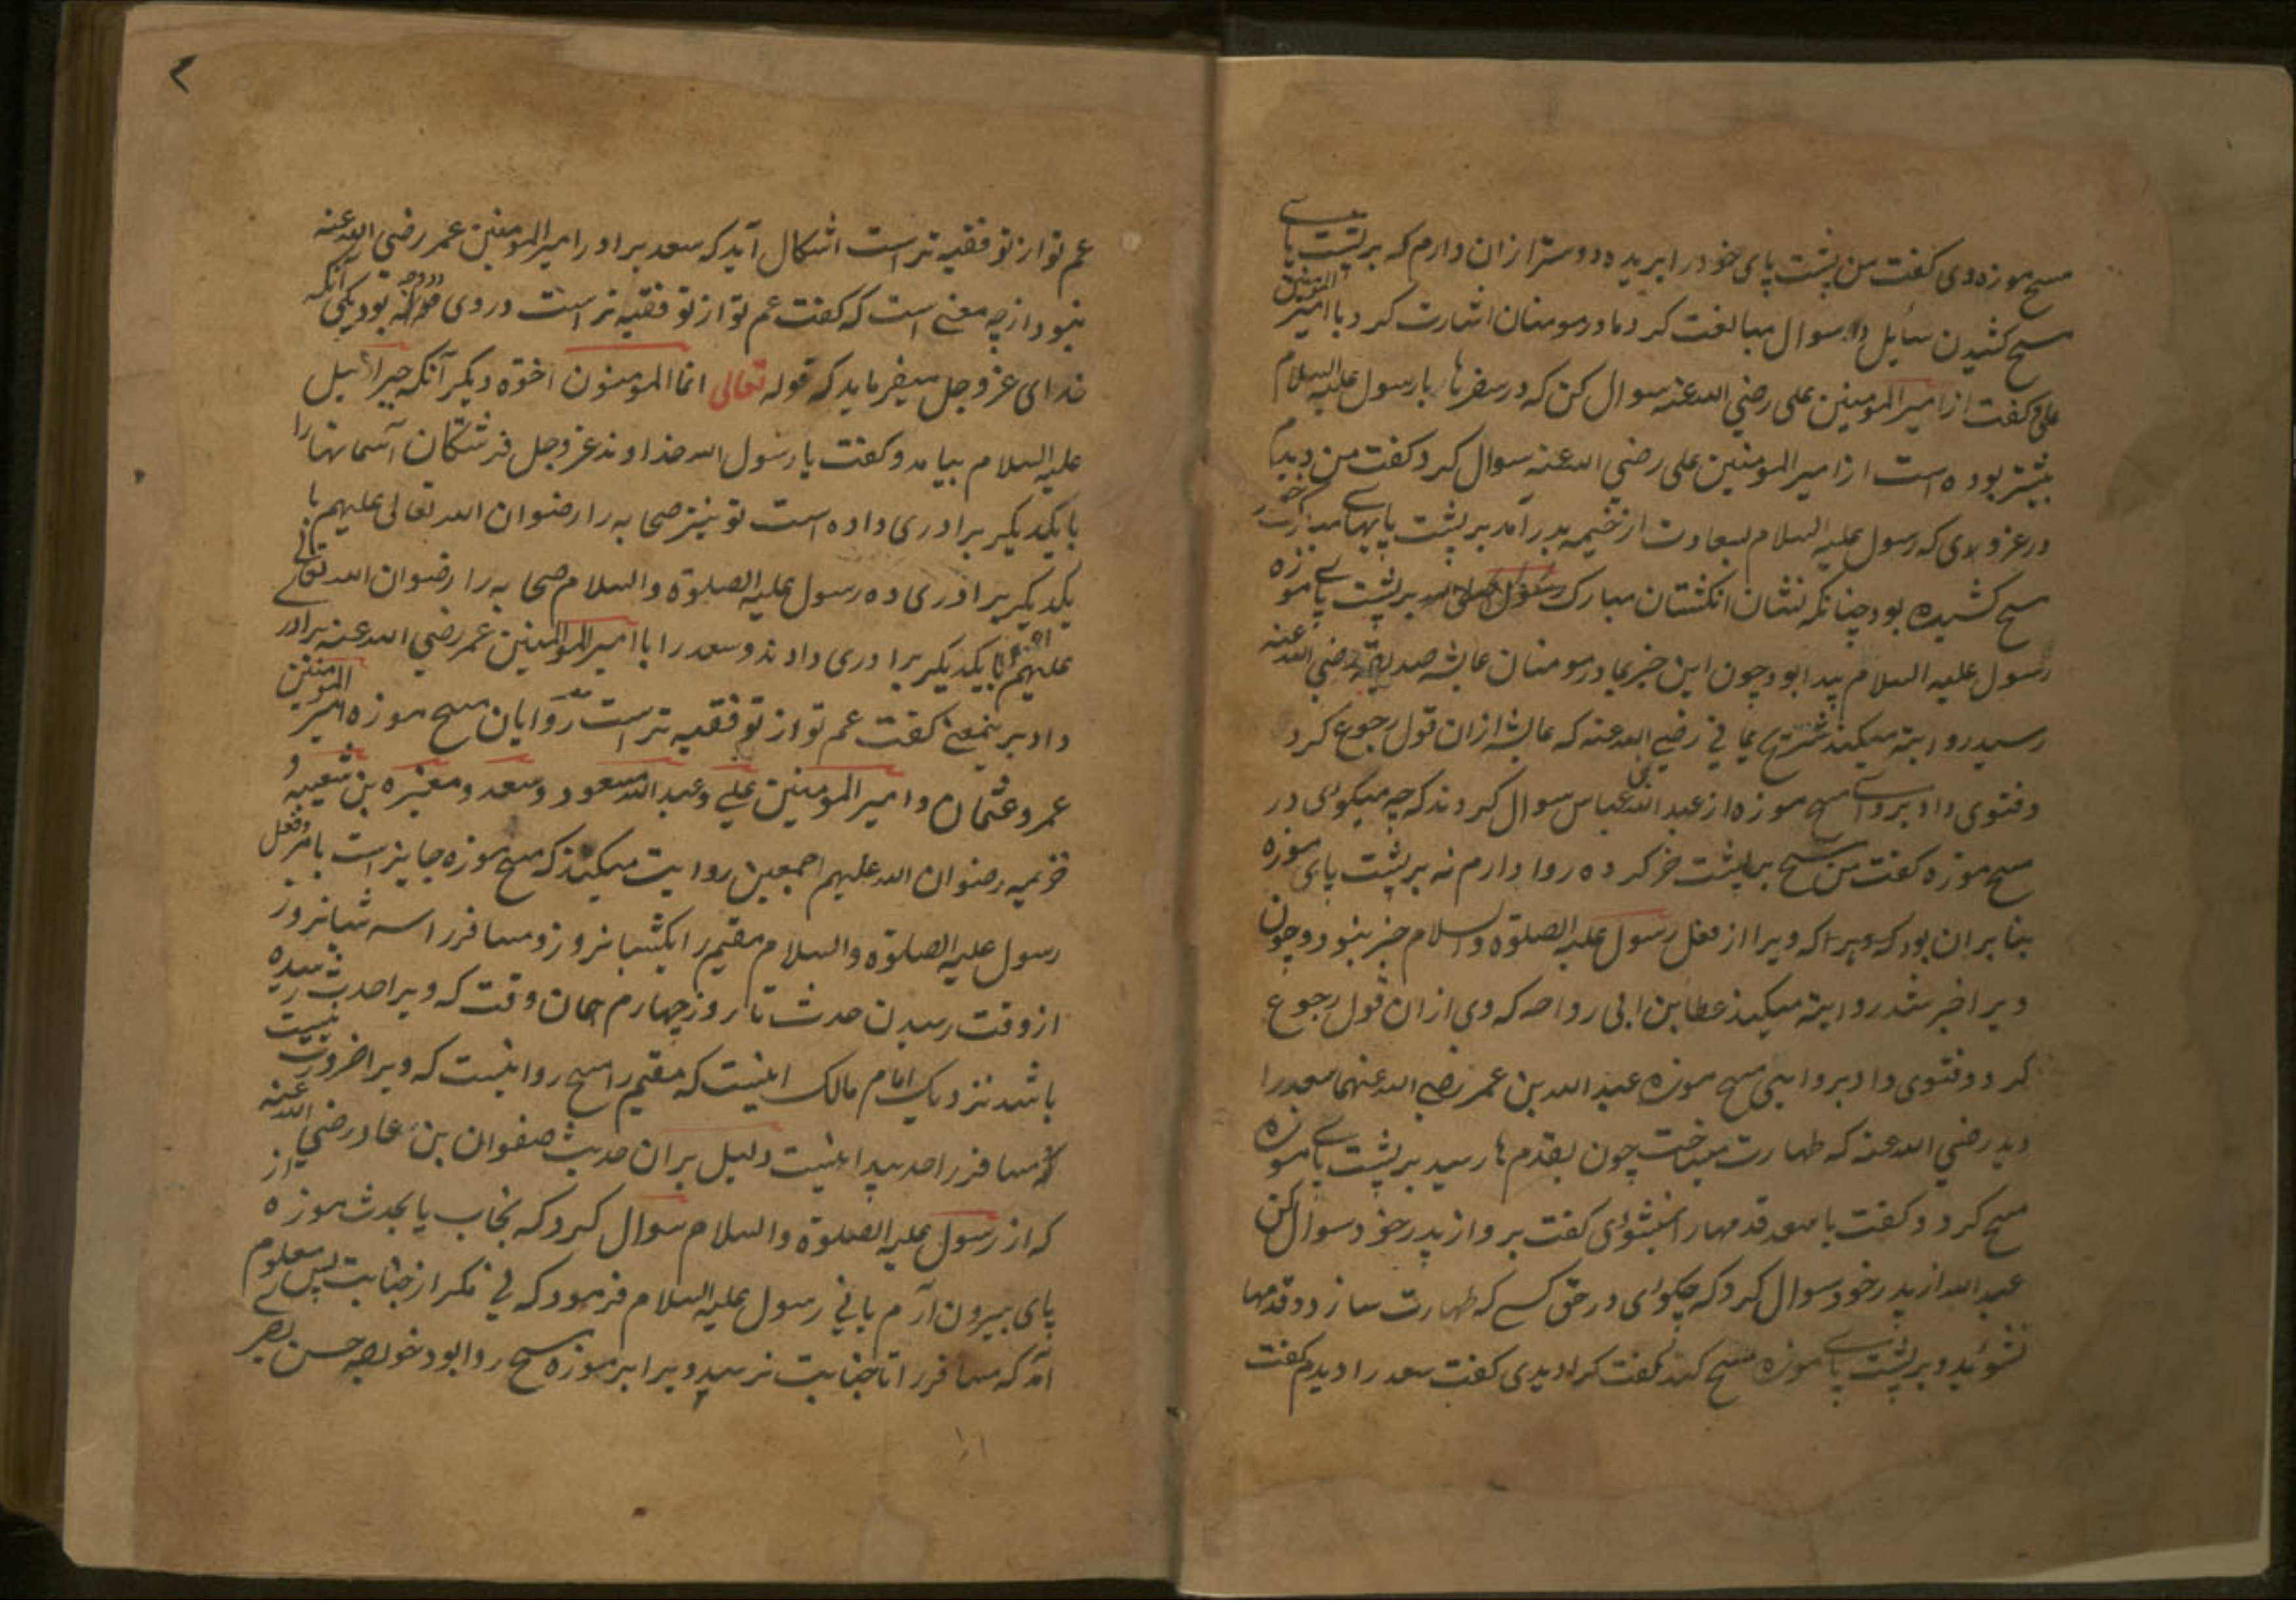 مسح موزه وی کفت من پشت پای خود را بریده دوستر ازان دارم که بر پشت پای
مسح کشیدن سایل را سوال مبالغت کرد مادر مومنان اشارت کرد با امیر المومنین
علی کفت از امیر المومنین علی رضی الله عنه سوال کن که در سفرها با رسول علیه السلام
بیشتر بوده است از امیر المومنین علی رضی الله عنه سوال کرد کفت من دیدم
در غزوۀ که رسول علیه السلام از خیمه بدر آمد بر پشت پایهای مبارک خود
مسح کشیده بود چنانکه نشان انکشتان مبارک بر پشت پای موزه
رسول علیه السلام پیدا بود چون این خبر بمادر مومنان عایشه صدیقه رضی الله عنه
رسید روایته میکند رضی الله عنه که عایشه ازان قول رجوع کرد
وفتوی داد بروای مسح موزه از عبد الله بن عباس سوال کردند که چه میکوی در
مسح موزه کفت من مسح بر پشت خر کرده روا دارم نه بر پشت پای موزه
بنا بران بود که ویرا از فعل رسول علیه الصلوة والسلام خبر نبود وچون
ویرا خبر شد روایته میکند عطا بن ابی رواحه که وی ازان قول رجوع
کرد وفتوی داد بروایی مسح موزه عبد الله بن عمر رضی الله عنهما سعد را
دید رضی الله عنه که طهارت میساخت چون بقدمها رسید بر پشت پای موزه
مسح کرد وکفت یا سعد قدمها را نمیشوئی کفت برو از پدر خود سوال کن
عبد الله از پدر خود سوال کرد که چکوئی در حق کسے که طهارت سازد وقدمها
نشوید وبر پشت پای موزه مسح کند کفت کرا دیدی کفت سعد را دیدم کفت
۲
عم تو از تو فقیه تر است اشکال آید که سعد برادر امیر المومنین عمر رضی الله عنه
نبود از چه معنے است که کفت عم تو از تو فقیه تر است در وی دو وجه بود یکی آنکه
خدای عز وجل میفرماید که قوله تعالی انما المومنون اخوة دیکر آنکه جبرائیل
علیه السلام بیامد وکفت یا رسول الله خداوند عز وجل فرشتکان آسمانها را
با یکدیکر برادری داده است تو نیز صحابه را رضوان الله تعالی علیهم با
یکدیکر برادری ده رسول علیه الصلوة والسلام صحابه را رضوان الله تعالی
علیهم اجمعین با یکدیکر برادری دادند وسعد را با امیر المومنین عمر رضی الله عنه برادر
داد برینمعنے کفت عم تو از تو فقیه تر است روایان مسح موزه امیر المومنین
عمر وعثمان وامیر المومنین علی وعبد الله مسعود وسعد ومغیره بن شعیبه و
خزیمه رضوان الله علیهم اجمعین روایت میکنند که مسح موزه جایز است بامر وفعل
رسول علیه الصلوة والسلام مقیم را یکشبانروز ومسافر را سه شبانروز
از وقت رسیدن حدث تا روز چهارم همان وقت که ویرا حدث رسیده
باشد نزدیک امام مالک اینست که مقیم را مسح روا نیست که ویرا ضرورت نیست
مسافر را حد پیدا نیست دلیل بران حدیث صفوان بن عاد رضی الله عنه
که از رسول علیه الصلوة والسلام سوال کرد که بخاب یا بحدث موزه از
پای بیرون آرم یا نی رسول علیه السلام فرمود که نی مکر از جنابت پس معلوم
آمد که مسافر را تا جنابت نرسد ویرا بر موزه مسح روا بود خواجه حسن بصری